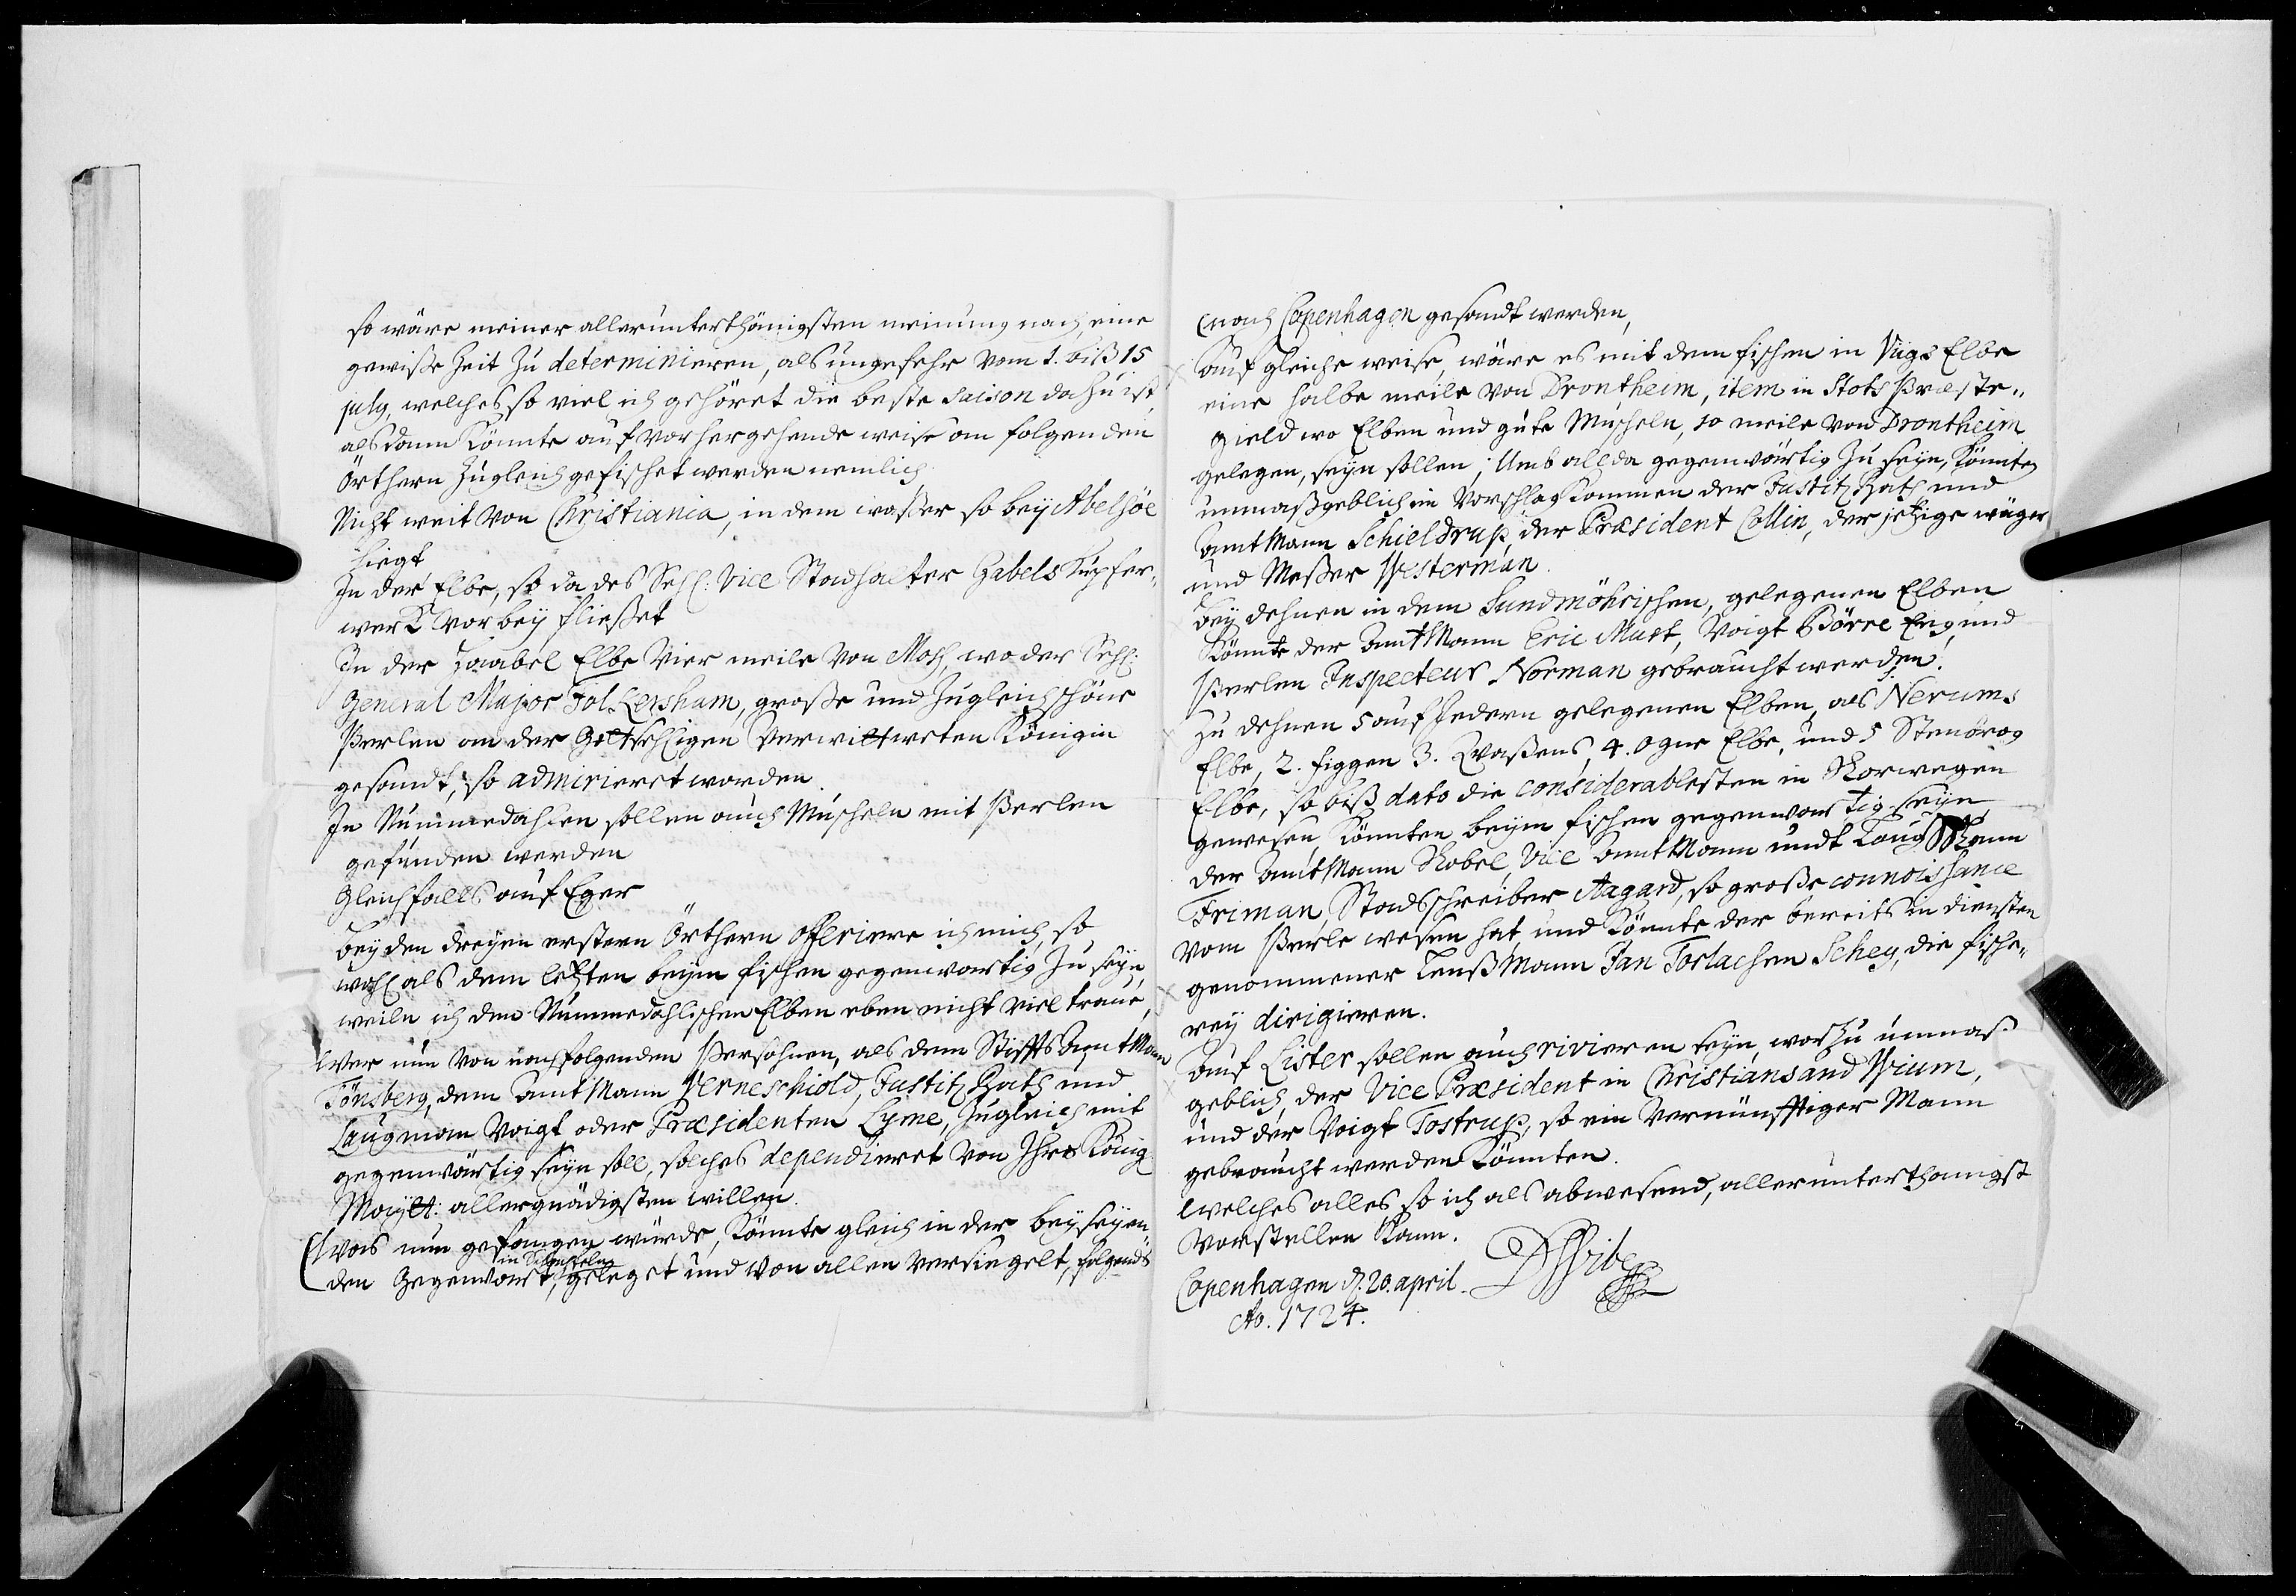 so wäre meiner allerunterthänigsten meinung nach, eine
gewiße Zeit zu determinieren, als ungefehr vom 1. biß 15
july, welches so viel ich gehöret die beste saison dazu ist,
alsdann könnte auf vorhergehende weise an folgenden
Örthern zugleich gefischet werden nemlich
Nicht weit von Christiania, in dem waßer so bey Abelsöe
liegt
In der Elbe, so da des Sehl: Vice Stadhalter Gabels Kupfer„
werk vorbey fließet
In der Haabel Elbe Vier meile von Moß, wo der Sehl:
General Major Tol. Lersham, große und zugleich schöne
Perlen an der Gottsehligen Verwittweten Königin
gesandt, so admirieret worden.
In Nummedahlen sollen auch Muscheln mit Perlen
gefunden werden
Gleichfalls auf Eger
Bey den dreyen ersteren Örthern offeriere ich mich, so
wohl als dem letzten beym fischen gegenwartig zu seyn,
weiln ich den Nummedahlischen Elben eben nicht viel traue,
Wer nun von nachfolgenden Persohnen, als dem Stifftsamtmann
Tönsberg, dem Amtmann Verneschiold, Justitz Rath und
Laugman Voigt oder Præsidenten Lyme, zugleich mit
gegenwärtig seyn soll, solches dependieret von Ihro König
Maytt: allergnädigsten willen.
Was nun gefangen würde, könnte gleich in der beyseyen„
in Schachteln
den Gegenwart, geleget und von allen versiegelt, folgends
nach Copenhagen gesandt werden,
Auf gleiche weise, wäre es mit dem fischen in Vugs Elbe
eine halbe meile von Drontheim, item in Stods Præste„
gield wo Elben und gute Muscheln, 10 meile von Drontheim
gelegen, seyn sollen; Umb allda gegenwärtig zu seyn, könnten
unmaßgeblich in Vorschlag kommen der Justitz Rath und
Amtmann Schieldrup, der Præsident Collin, der jetzige wäger
und Meßer Westerman.
Bey dehnen in dem Sundmöhrischen, gelegenen Elben
könnte der Amtmann Eric Must, Voigt Börre Eeg, und
Perlen Inspecteur Norman gebraucht werden.
Zu dehnen 5 auf Jedern gelegenen Elben, als Nerums
Elbe, 2. Figgen 3. Qvaßens, 4. Ogne Elbe, und 5 Stenörog
Elbe, so biß dato die considerablesten in Norwegen
gewesen, könnten beym fischen gegenwartig seyn
der Amtmann Nobel, Vice Amtmann undt Laugmann
Friman, Stadtschreiber Aagard, so große connoissance
vom Perle wesen hat, und könnte der bereits in diensten
genommener Lenßmann Jan Torlachsen Scheg, die fische„
rey dirigieren.
Auf Lister sollen auch rivieren seyn, worzu unmaß
geblich, der Vice Præsident in Christiansand Wium,
und der Voigt Tostrup, so ein vernünfftiger Mann
gebraucht werden könnten.
Welches alles so ich als abwesend, allerunterthanigst
vorstellen kann.
Copenhagen d. 20. april.
DWibe
Ao. 1724.